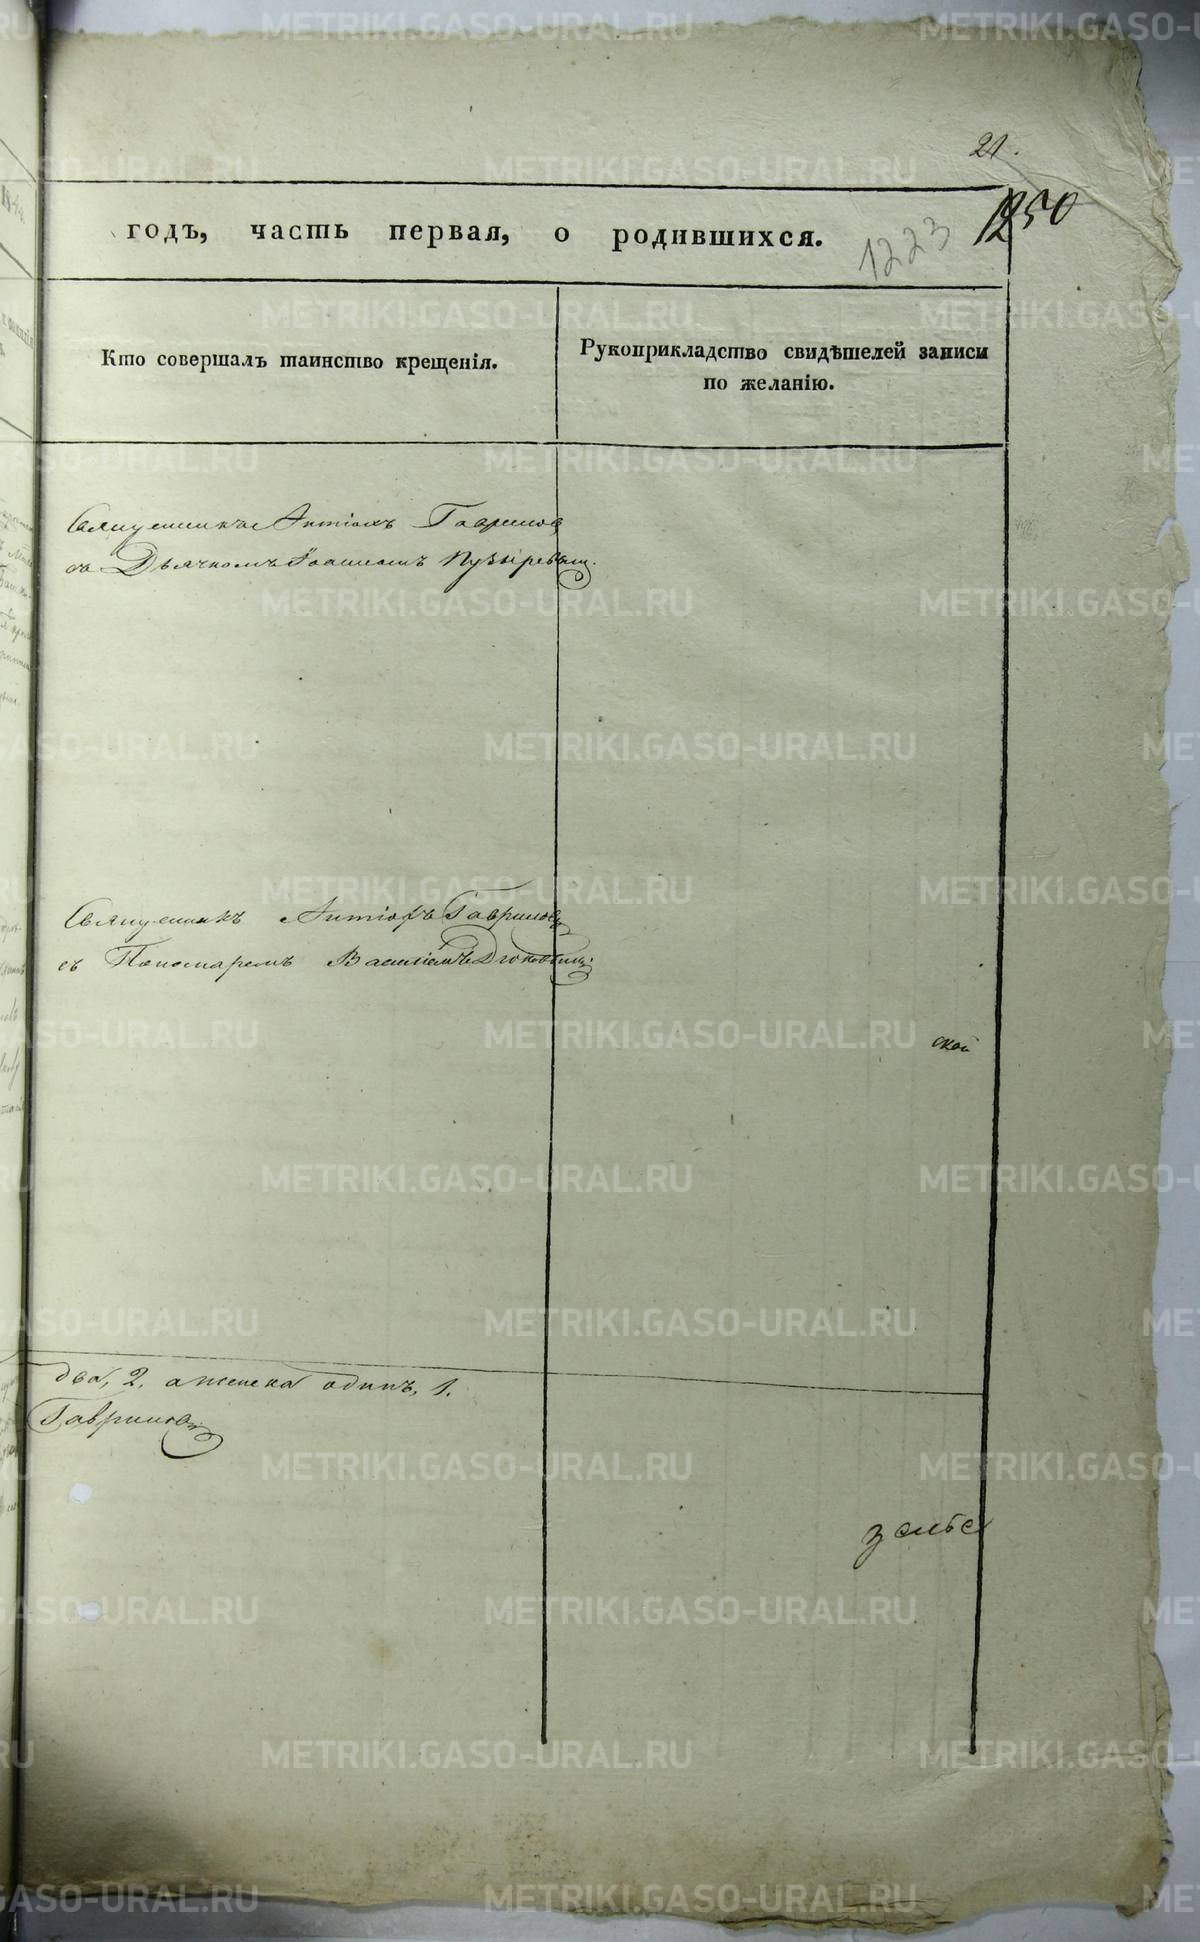 21.
1250
годъ, часть первая, о родившихся.
1223
Кто совершалъ таинство крещенія.
Рукоприкладство свидѣтелей записи
по желанію.
Священникъ Антіохъ Гавриловъ
съ Дьячкомъ Іоанномъ Пузыревымъ.
Священникъ Антіохъ Гавриловъ
съ Пономаремъ Василіемъ
ской
два, 2. а женска одинъ, 1.
Гавриловъ
METRIKI.GASO-URAL.RU